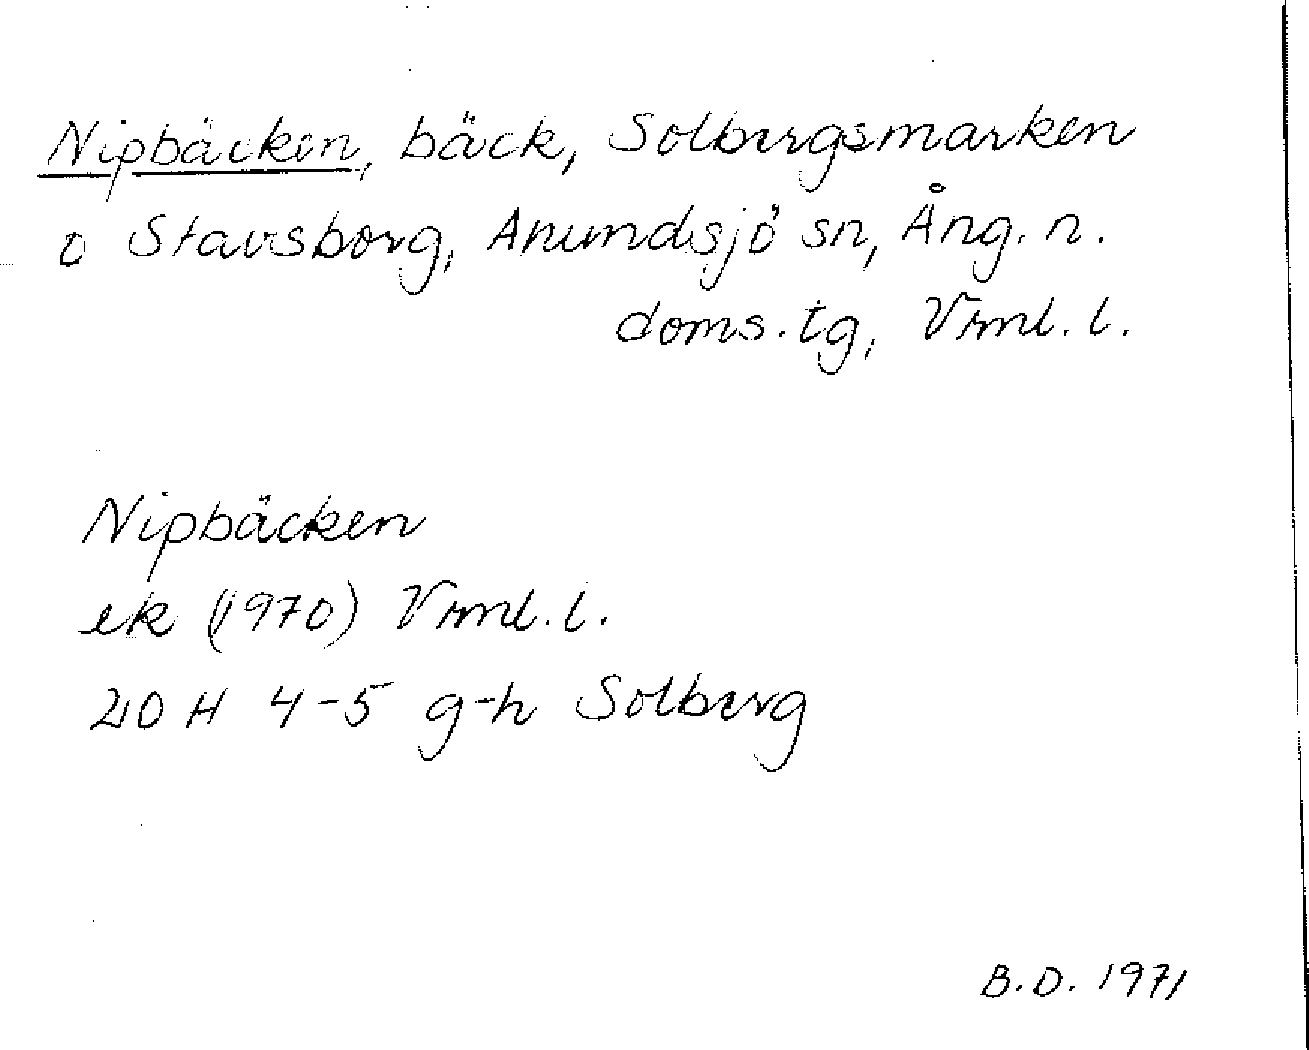 Nipbäcken, bäck, Solbergsmarken
o Stavsborg, Anundsjö sn, Ång. n.
doms.tg, Vrml. l.
Nipbäcken
ek (1970) Vrml. l.
20 H 4-5 g-h Solberg
B.D. 1971